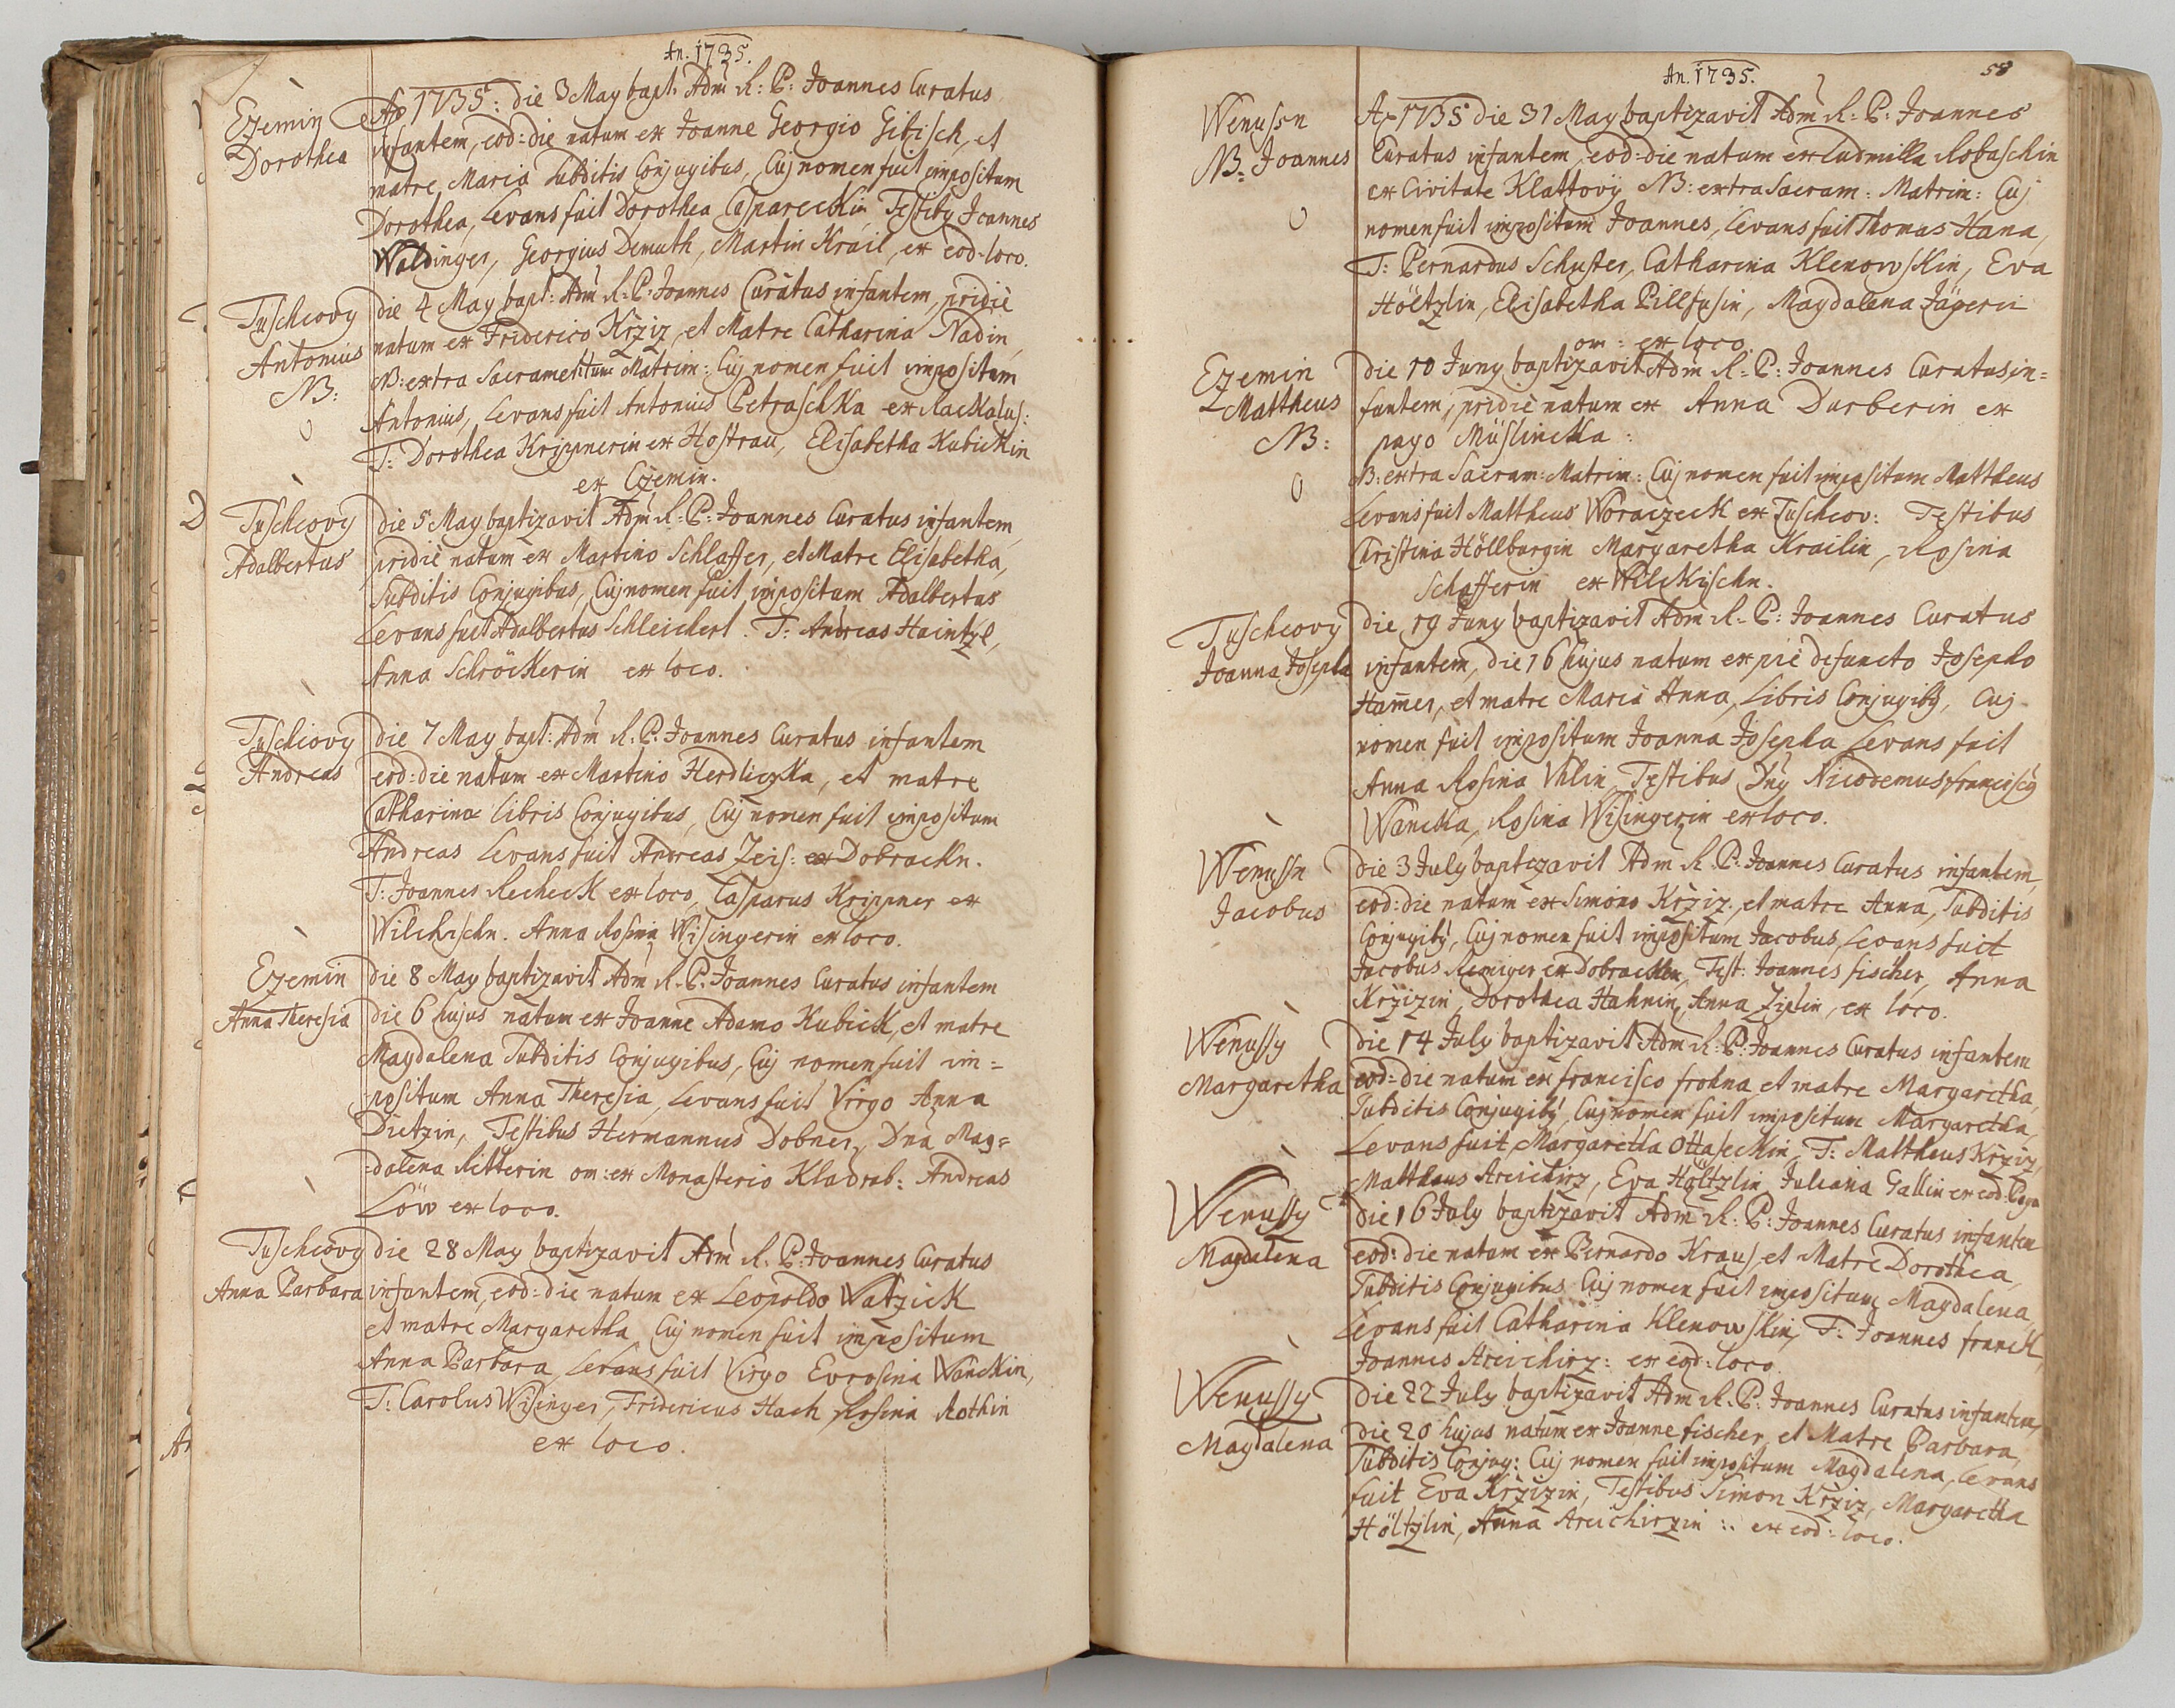 An. 1735.
Ezemin
Dorothea
Ao 1735: die 3 May bapt. Adm R: P: Joannes Curatus
infantem, eod: die natum ex Joanne Georgio Gibisch, et
matre Maria Subditis Conjugibus, Cuj nomen fuit impositum
Dorothea, Levans fuit Dorothea Caspareckin, Testiby Joannes
Waldinger, Georgius Demuth, Martin Krail, ex eod. loco.
Tuschcovy
Antonius
NB:
die 4 May bapt: Adm R: P: Joannes Curatus infantem, pridie
natum ex Friderico Krziz, et Matre Catharina Nadin,
NB: extra Sacramentum Matrim: Cuj nomen fuit impositum
Antonius, Levans fuit Antonius Petraschka ex Rackolus:
T: Dorothea Krippnerin ex Hostrau, Elisabetha Kubickin
ex Czemin.
Tuschcovy
Adalbertus
die 5 May baptizavit Adm R: P: Joannes Curatus infantem,
pridie natum ex Martino Schlaffer, et Matre Elisabetha,
Subditis Conjugibus, Cuj nomen fuit impositum Adalbertus
Levans fuit Adalbertus Schleichert. T: Andreas Haintzl,
Anna Schröckerin ex loco.
Tuschcovy
Andreas
die 7 May bapt: Adm R. P. Joannes Curatus infantem
eod: die natum ex Martino Herdliczka, et matre
Catharina libris Conjugibus, Cuj nomen fuit impositum
Andreas Levans fuit Andreas Zeis: ex Dobrackn.
T: Joannes Recheck ex loco, Casparus Krippner ex
Wilchischn. Anna Rosina Wisingerin ex loco.
Ezemin
Anna Theresia
die 8 May baptizavit Adm R. P. Joannes Curatus infantem
die 6 hujus natum ex Joanne Adamo Kubick, et matre
Magdalena Subditis Conjugibus, Cuj nomen fuit im=
positum Anna Theresia, Levans fuit Virgo Anna
Dietzin, Testibus Hermannus Dobner, Dna Mag=
=dalena Ritterin om: ex Monasterio Kladrab: Andreas
Löw ex loco.
Tuschcovy
Anna Barbara
die 28 May baptizavit Adm R. P. Joannes Curatus
infantem, eod: die natum ex Leopoldo Watzick
et matre Margaretha, Cuj nomen fuit impositum
Anna Barbara, Levans fuit Virgo Evrosina Wanckin,
T: Carolus Wisinger, Fridericus Hach, Rosina Rothin
ex loco.
An. 1735.
58
Wenussn
NB: Joannes
Ao 1735 die 31 May baptizavit Adm R: P: Joannes
Curatus infantem, eod: die natum ex Ludmilla Robaschin
ex Civitate Klattovij NB: extra Sacram: Matrim: Cuj
nomen fuit impositum Joannes, Levans fuit Thomas Hana,
T: Bernardus Schuster, Catharina Klenowskin, Eva
Höltzlin, Elisabetha Pillsusin, Magdalena Jägerin
om: ex loco.
Ezemin
Mattheus
NB:
die 10 Juny baptizavit Adm R: P: Joannes Curatus in=
fantem, pridie natum ex Anna Durberin ex
pago Müslincka:
NB: extra Sacram: Matrim: Cuj nomen fuit impositum Mattheus
Levans fuit Mattheus Woraczeck ex Tuschcov: Testibus
Christina Höllburgin Margaretha Krailin, Rosina
Schafferin ex Wilckischn.
Tuschcovy
Joanna Josepha
die 19 Juny baptizavit Adm R. P: Joannes Curatus
infantem, die 16 hujus natum ex pie defuncto Josepho
Hamer, et matre Maria Anna, Libris Conjugiby, Cuj
nomen fuit impositum Joanna Josepha Levans fuit
Anna Rosina Uhlin, Testibus Dny Nicodemus franciscy
Wancka, Rosina Wisingerin ex loco.
Wenussn
Jacobus
die 3 July baptizavit Adm R. P: Joannes Curatus infantem,
eod: die natum ex Simono Krziz, et matre Anna, Subditis
Conjugiby, Cuj nomen fuit impositum Jacobus, Levans fuit
Jacobus Remiger ex Dobrackn, Test: Joannes fischer, Anna
Krzizin, Dorothea Hahnin, Anna Ziplin, ex loco.
Wenussy
Margaretha
die 14 July baptizavit Adm R: P: Joannes Curatus infantem
eod: die natum ex francisco frohna et matre Margaretha,
Subditis Conjugiby, Cuj nomen fuit impositum Margaretha,
Levans fuit Margaretha Ottaseckin, T: Mattheus Krziz,
Matthaus Areichirz, Eva Höltzlin, Juliana Gallin ex eod: Pago
Wenussy
Magdalena
die 16 July baptizavit Adm R. P: Joannes Curatus infantem
eod: die natum ex Bernardo Kraus, et Matre Dorothea,
Subditis Conjugibus Cuj nomen fuit impositum Magdalena,
Levans fuit Catharina Klenowskin, T: Joannes franck,
Joannes Areichirz: ex eod: loco.
Wenussy
Magdalena
die 22 July baptizavit Adm R. P: Joannes Curatus infantem,
die 20 hujus natum ex Joanne fischer, et Matre Barbara,
Subditis Conjug: Cuj nomen fuit impositum Magdalena, Levans
fuit Eva Krzizin, Testibus Simon Krziz, Margaretha
Höltzlin, Anna Areichirzin :: ex eod: loco.